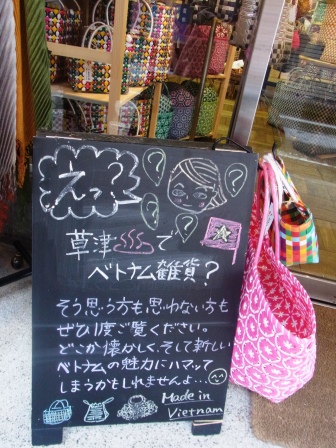 えっ?
草津♨で
ベトナム雑貨?
そう思う方も思わない方も
ぜひ1度ご覧ください。
どこか懐かしく、そして新しい
ベトナムの魅力にハマって
しまうかもしれませんよ…^^
Made in
Vietnam